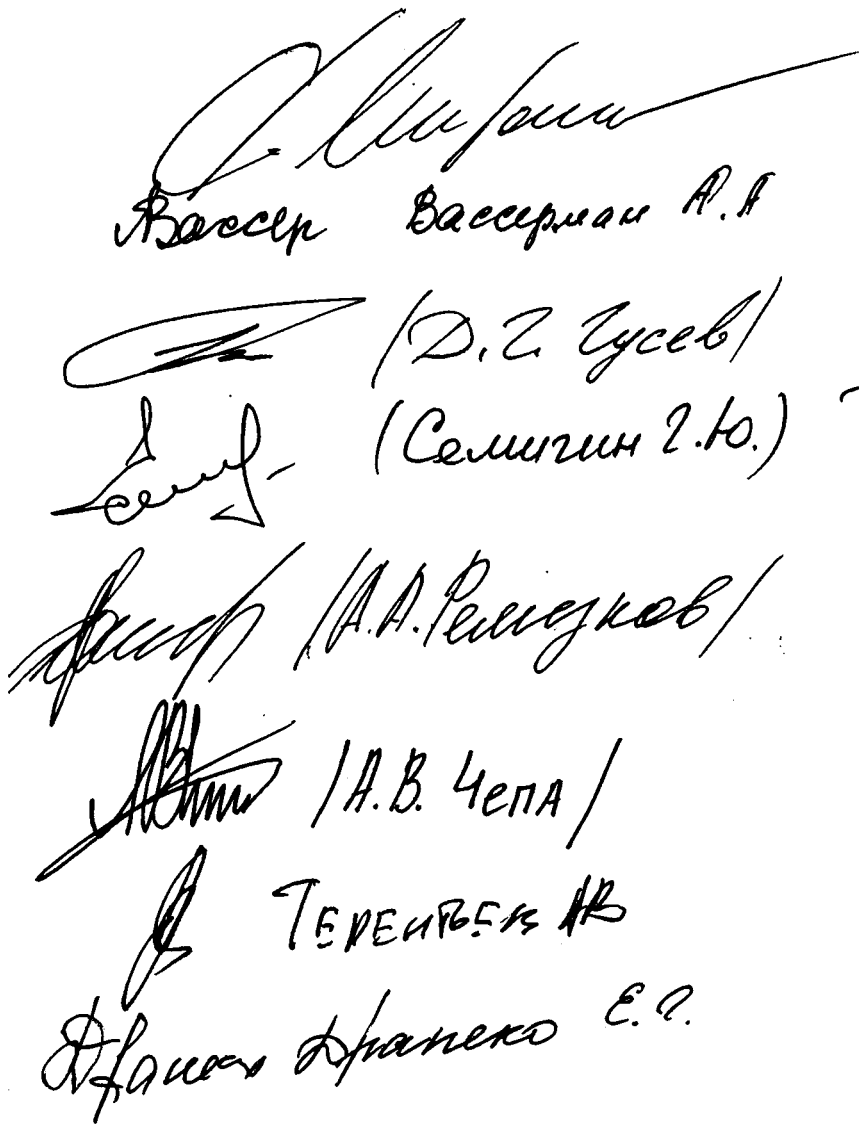 Вассер Вассерман А.А
/Д.Г. Гусев/
(Семигин Г.Ю.)
/А.А. Ремезков/
/А.В. Чепа/
Терентьев АВ
Драпеко Е.Г.